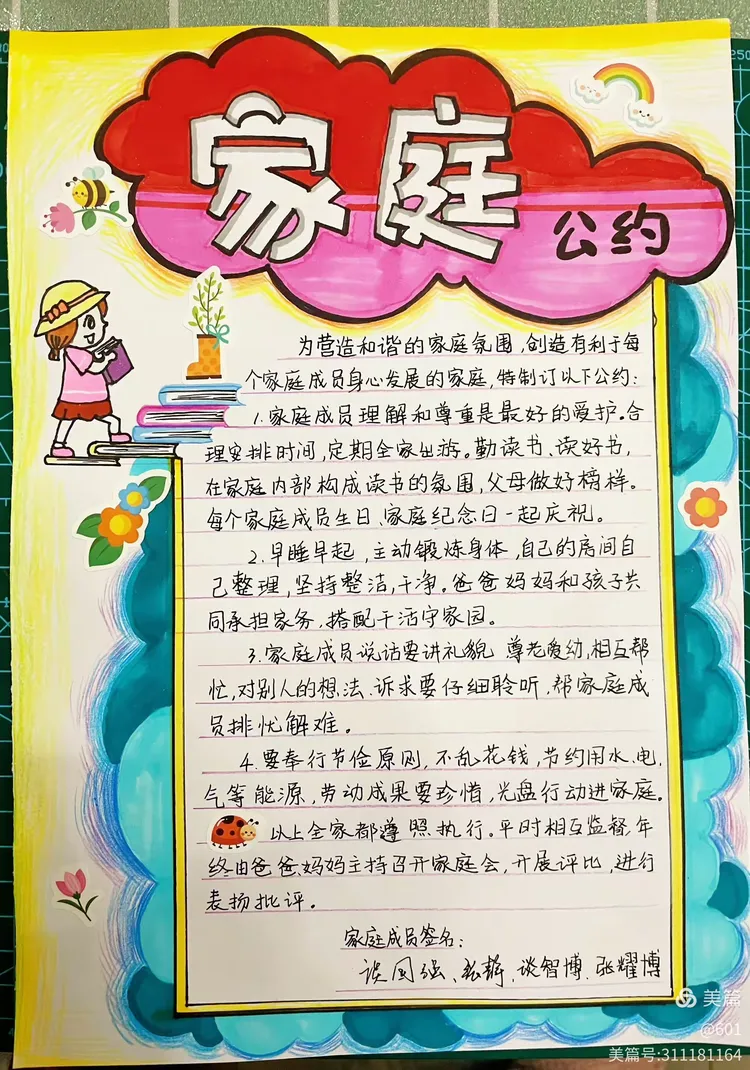 家庭
公约
为营造和谐的家庭氛围,创造有利于每
个家庭成员身心发展的家庭,特制订以下公约:
1.家庭成员理解和尊重是最好的爱护。合
理安排时间,定期全家出游。勤读书、读好书,
在家庭内部构成读书的氛围,父母做好榜样。
每个家庭成员生日、家庭纪念日一起庆祝。
2.早睡早起,主动锻炼身体,自己的房间自
己整理,坚持整洁,干净。爸爸妈妈和孩子共
同承担家务,搭配干活守家园。
3.家庭成员说话要讲礼貌 尊老爱幼,相互帮
忙,对别人的想法、诉求要仔细聆听,帮家庭成
员排忧解难。
4.要奉行节俭原则,不乱花钱,节约用水、电、
气等能源,劳动成果要珍惜,光盘行动进家庭。
以上全家都遵照执行。平时相互监督,年
终由爸爸、妈妈主持召开家庭会,开展评比,进行
表扬批评。
家庭成员签名:
谈国强、张静、谈智博、张耀博
美篇
@601
美篇号:311181164